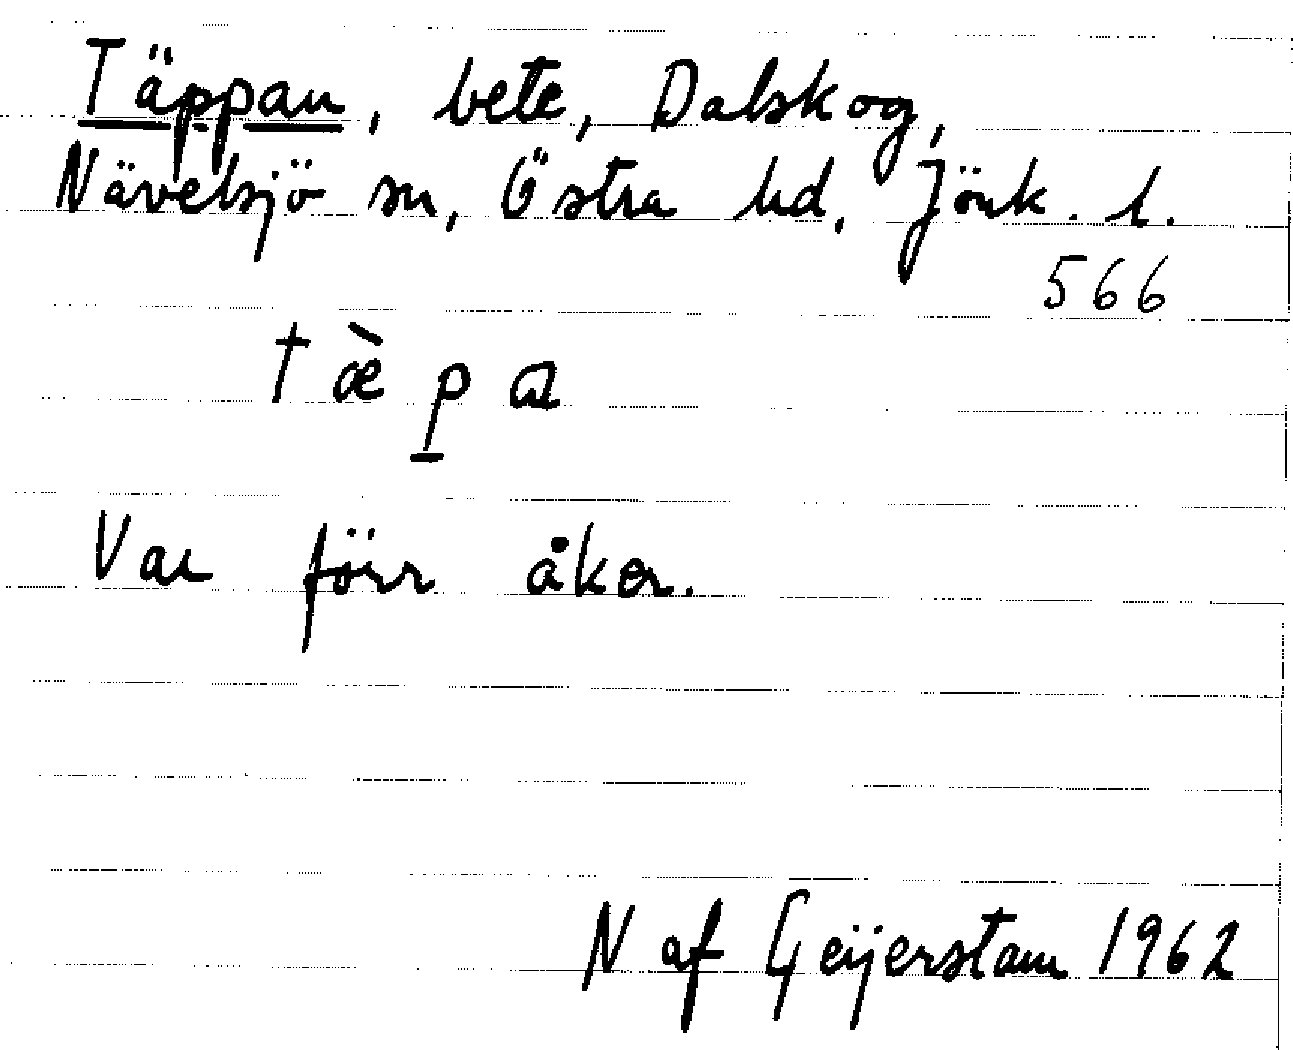 Täppan, bete, Dalskog,
Nävelsjö sn, Östra hd, Jönk. l.
566
tæ̀p̱a
Var förr åker.
N af Geijerstam 1962